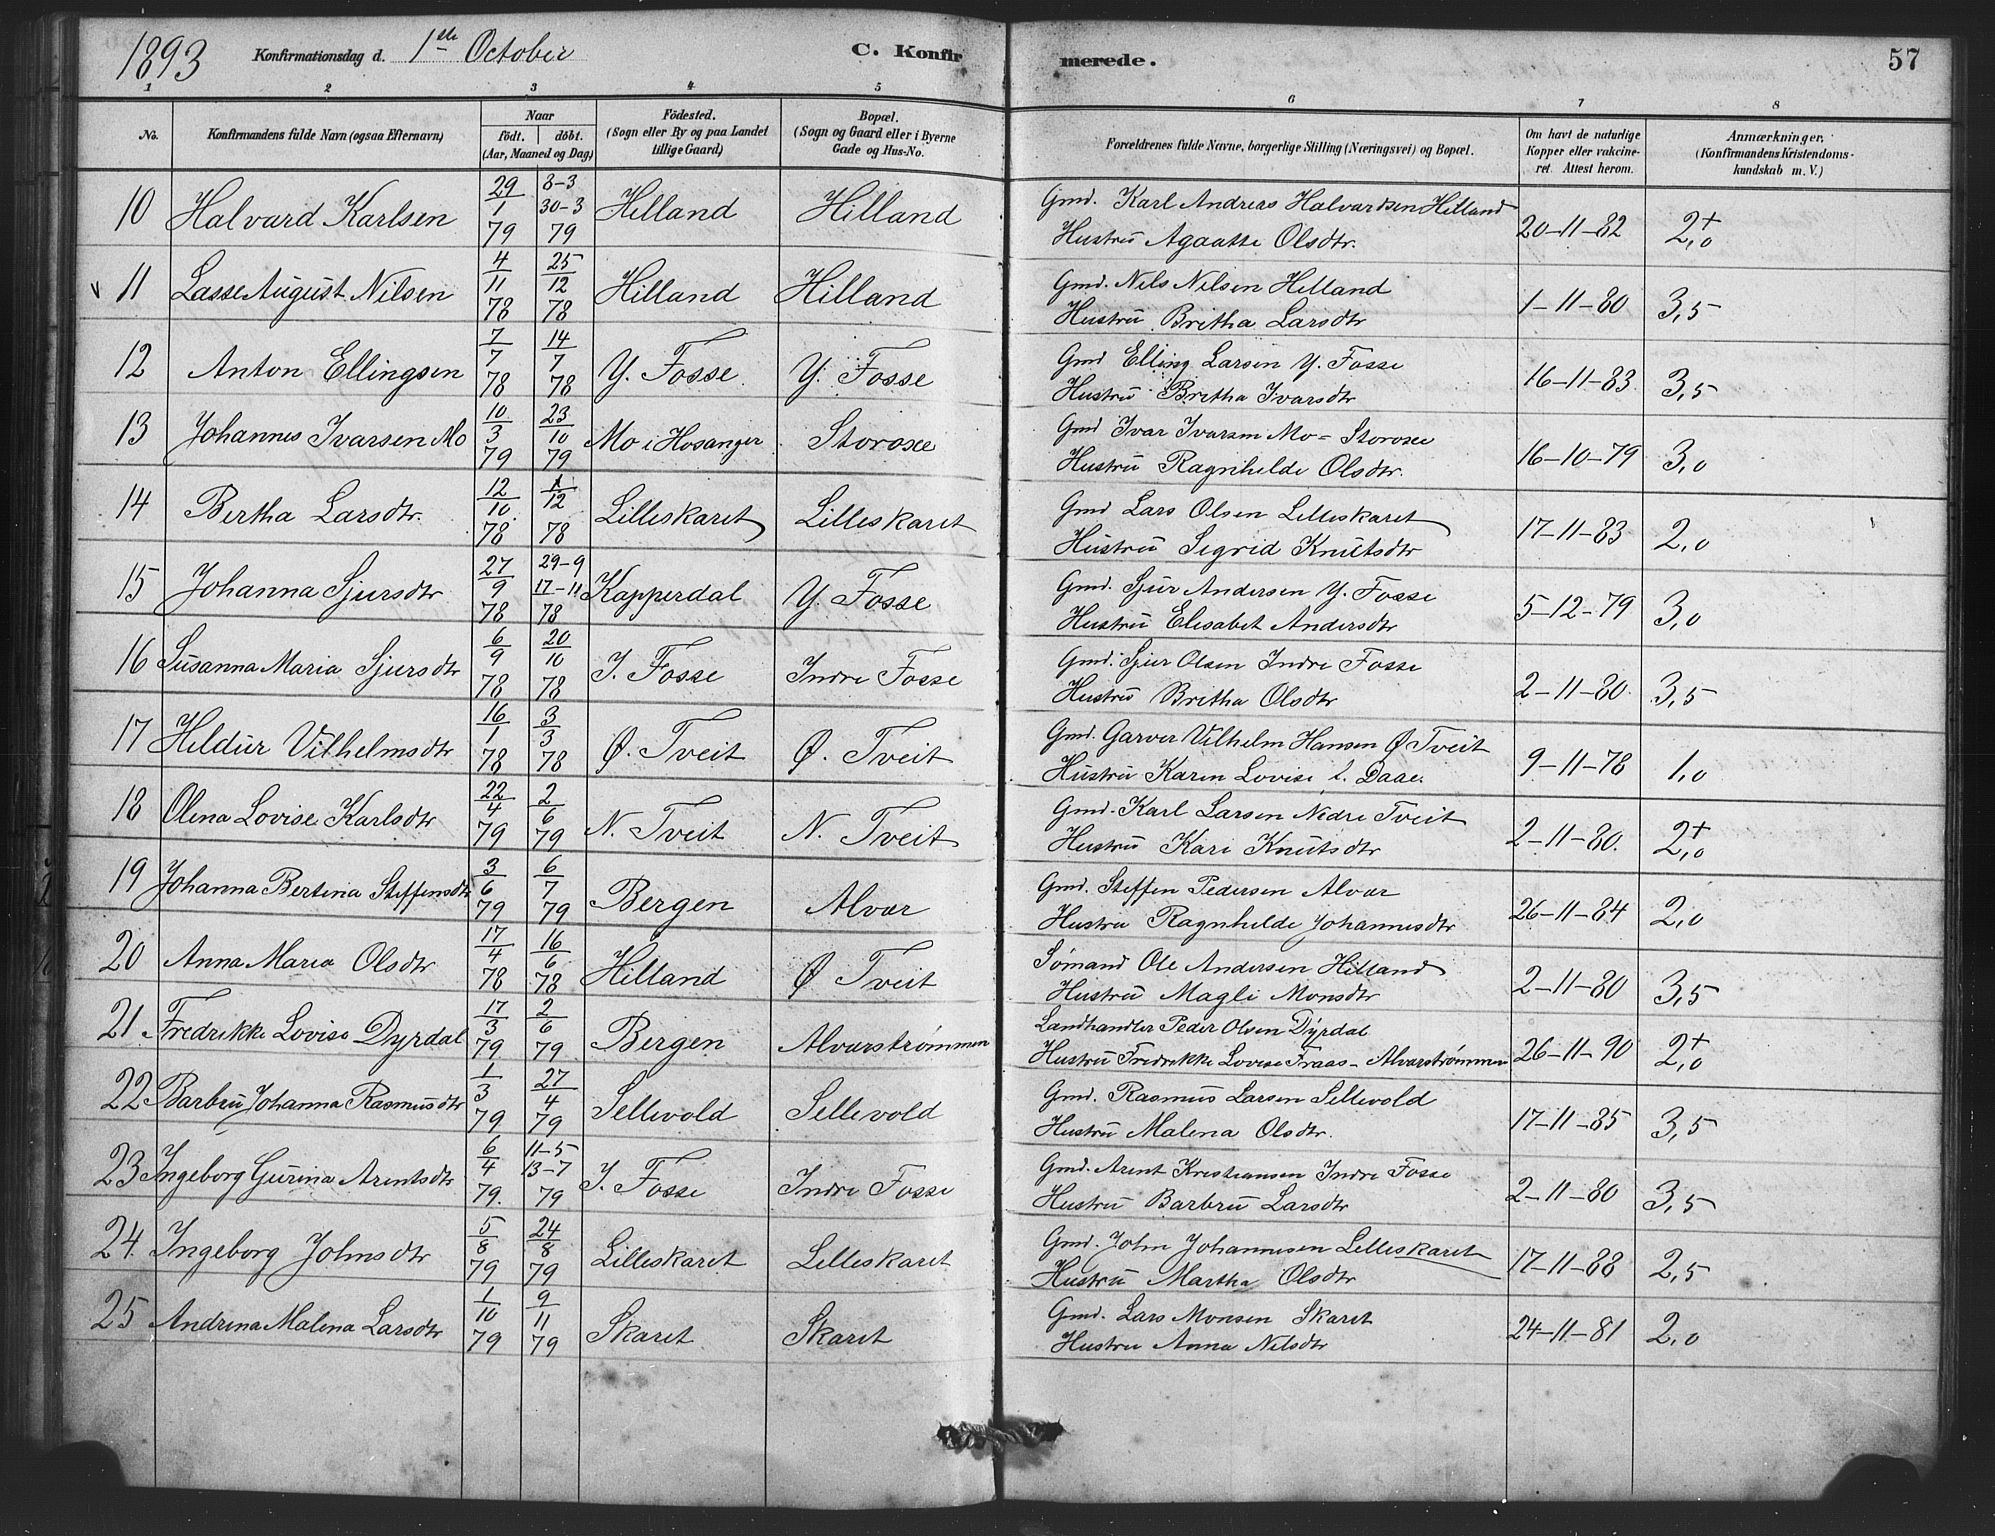 1893 Konfirmationsdag d. 1ste October C. Konfirmerede. 57
1 2 3 4 5 6 7 8
No. Konfirmandens fulde Navn (ogsaa Efternavn) Naar födt. döbt. (Aar, Maaned og Dag) Födested. (Sogn eller By og paa Landet tillige Gaard) Bopæl. (Sogn og Gaard eller i Byerne Gade og Hus-No. Forældrenes fulde Navne, borgerlige Stilling (Næringsvei) og Bopæl. Om havt de naturlige Kopper eller vakcineret. Attest herom. Anmærkninger, (Konfirmandens Kristendomskundskab m. V.)
10 Halvard Karlsen 29/1 79 8-3 30-3 79 Hilland Hilland Gmd. Karl Andreas Halvardsen Hilland 20-11-82 2,0+
Hustru Agaatte Olsdtr.
11 Lasse August Nilsen 4/11 78 25/12 78 Hilland Hilland Gmd. Nils Nilsen Hilland 1-11-80 3,5
Hustru Britha Larsdtr
12 Anton Ellingsen 7/7 78 14/7 78 Y. Fosse Y. Fosse Gmd Elling Larsen Y. Fosse 16-11-83 3,5
Hustru Britha Ivarsdtr
13 Johannes Ivarsen Mo 10/3 79 23/10 79 Mo i Hosanger Storosee Gmd Ivar Ivarsen Mo - Storosee 16-10-79 3,0
Hustru Ragnhilde Olsdtr.
14 Bertha Larsdtr. 12/10 78 1/12 78 Lilleskaret Lilleskaret Gmd Lars Olsen Lilleskaret 17-11-83 2,0
Hustru Sigrid Knutsdtr
15 Johanna Sjursdtr 27/9 78 29-9 17-11 78 Kapperdal Y. Fosse Gmd. Sjur Andersen Y. Fosse 5-12-79 3,0
Hustru Elisabet Andersdtr
16 Susanna Maria Sjursdtr 6/9 78 20/10 78 I. Fosse Indre Fosse Gmd. Sjur Olsen Indre Fosse 2-11-80 3,5
Hustru Britha Olsdtr
17 Hildur Vilhelmsdtr 16/1 78 3/3 78 Ø. Tveit Ø. Tveit Gmd. Garver Vilhelm Hansen Ø Tveit 9-11-78 1,0
Hustru Karen Lovise f. Daae.
18 Olena Lovise Karlsdtr 22/4 79 2/6 79 N. Tveit N. Tveit Gmd. Karl Larsen Nedre Tveit 2-11-80. 2,0+
Hustru Kari Knutsdtr
19 Johanna Bertina Steffensdtr 3/6 79 6/7 79 Bergen Alvær Gmd. Steffen Pedersen Alvær 26-11-84 2,0
Hustru Ragnhilde Johannesdtr
20 Anna Maria Olsdtr 17/4 78 16/6 78 Hilland Ø Tveit Sømand Ole Andersen Hilland 2-11-80 3,5
Hustru Magli Monsdtr
21 Fredrikke Lovise Dyrdal 17/3 79 2/6 79 Bergen Alværstrømmen Landhandler Peder Olsen Dyrdal 26-11-90 2,0+
Hustru Fredrikke Lovise Fraas - Alværstrømmen
22 Barbru Johanna Rasmusdtr 1/3 79 27/4 79 Sellevold Sellevold Gmd. Rasmus Larsen Sellevold 17-11-85 3,5
Hustru Malena Olsdtr.
23 Ingeborg Gurina Arentsdtr 6/4 79. 11-5 13-7 79 I. Fosse Indre Fosse Gmd. Arent Kristiansen Indre Fosse 2-11-80 3,5
Hustru Barbru Larsdtr
24. Ingeborg Johnsdtr 5/8 79 24/8 79 Lilleskaret Lilleskaret Gmd. John Johannesen Lilleskaret 17-11-88 2,5
Hustru Martha Olsdtr
25 Andrina Malena Larsdtr 1/10 79 9/11 79 Skaret Skaret Gmd. Lars Monsen Skaret 24-11-81 2,0
Hustru Anna Nilsdtr